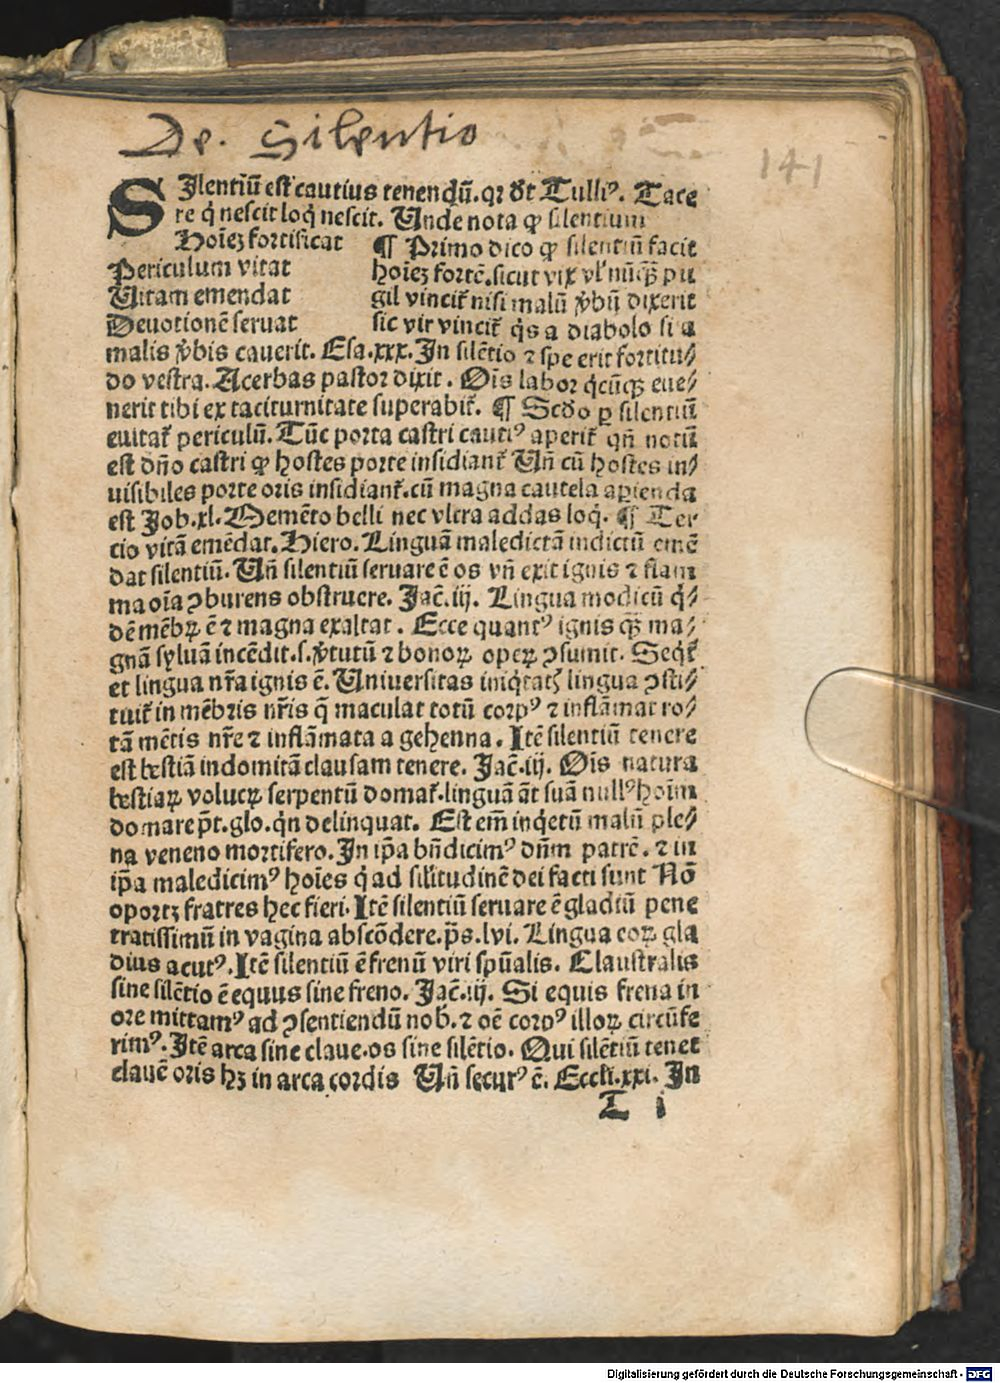 De. Silentio
141
SJlentiū est cautius tenendū. qꝛ dt Tulliꝰ. Tace
re q̇ nescit loq̇ nescit. Unde nota ꝙ silentium
Hoīeꝫ fortificat
Periculum vitat
Uitam emendat
Deuotionē seruat
¶ Primo dico ꝙ silentiū facit
hoīeꝫ fortē. sicut vix vl' nūqꝫ pu
gil vincit̄ nisi malū v̓bū dixerit
sic vir vincit̄ q̇s a diabolo si a
malis v̓bis cauerit. Esa.xxx. Jn silētio ⁊ spe erit fortitu⸗
do vestra. Acerbas pastoꝛ dixit. Oīs laboꝛ q̇cūqꝫ eue⸗
nerit tibi ex taciturnitate superabit̄. ¶ Scdo ꝑ silentiū
euitat̄ periculū. Tūc poꝛta castri cautiꝰ aperit̄ qn̄ notū
est dn̄o castri ꝙ hostes poꝛte insidiant̄ Un̄ cū hostes in⸗
uisibiles poꝛte oꝛis insidiant̄. cū magna cautela aꝑienda
est Job.xl. Memēto belli nec vltra addas loq̇. ¶ Ter
cio vitā emēdat. Hiero. Linguā maledictā indictū emē
dat silentiū. Un̄ silentiū seruare ē os vn̄ exit ignis ⁊ flam
ma oīa ꝯburens obstruere. Jac̄.iij. Lingua modicū q̇⸗
dē mēbꝝ ē ⁊ magna exaltat. Ecce quantꝰ ignis qꝫ ma⸗
gnā syluā incēdit. s. v̓tutū ⁊ bonoꝝ opeꝝ ꝯsumit. Seqt̄
et lingua nr̄a ignis ē. Uniuersitas iniq̇tatꝭ lingua ꝯsti⸗
tuit̄ in mēbꝛis nr̄is q̄ maculat totū coꝛpꝰ ⁊ inflāmat ro⸗
tā mētis nr̄e ⁊ inflāmata a gehenna. Jtē silentiū tenere
est bestiā indomitā clausam tenere. Jac̄.iij. Oīs natura
bestiaꝝ volucꝝ serpentū domat̄. linguā āt suā nullꝰ hoīm
domare pt̄. glo. q̇n delinquat. Est em̄ inq̇etū malū ple⸗
na veneno moꝛtifero. Jn ip̄a bn̄dicimꝰ dn̄m patrē. ⁊ in
ip̄a maledicimꝰ hoīes q̇ ad sil'itudinē dei facti sunt Nō
opoꝛtꝫ fratres hec fieri. Jtē silentiū seruare ē gladiū pene
tratissimū in vagina abscōdere. ps̄.lvi. Lingua eoꝝ gla
dius acutꝰ. Jtē silentiū ē frenū viri spūalis. Claustralis
sine silētio ē equus sine freno. Jac̄.iij. Si equis frena in
oꝛe mittamꝰ ad ꝯsentiendū nob̄. ⁊ oē coꝛpꝰ illoꝝ circūfe
rimꝰ. Jtē arca sine claue. os sine silētio. Qui silētiū tenet
clauē oꝛis hꝫ in arca coꝛdis Un̄ securꝰ ē. Eccl'i.xxi. Jn
T i
Digitalisierung gefördert durch die Deutsche Forschungsgemeinschaft - DFG